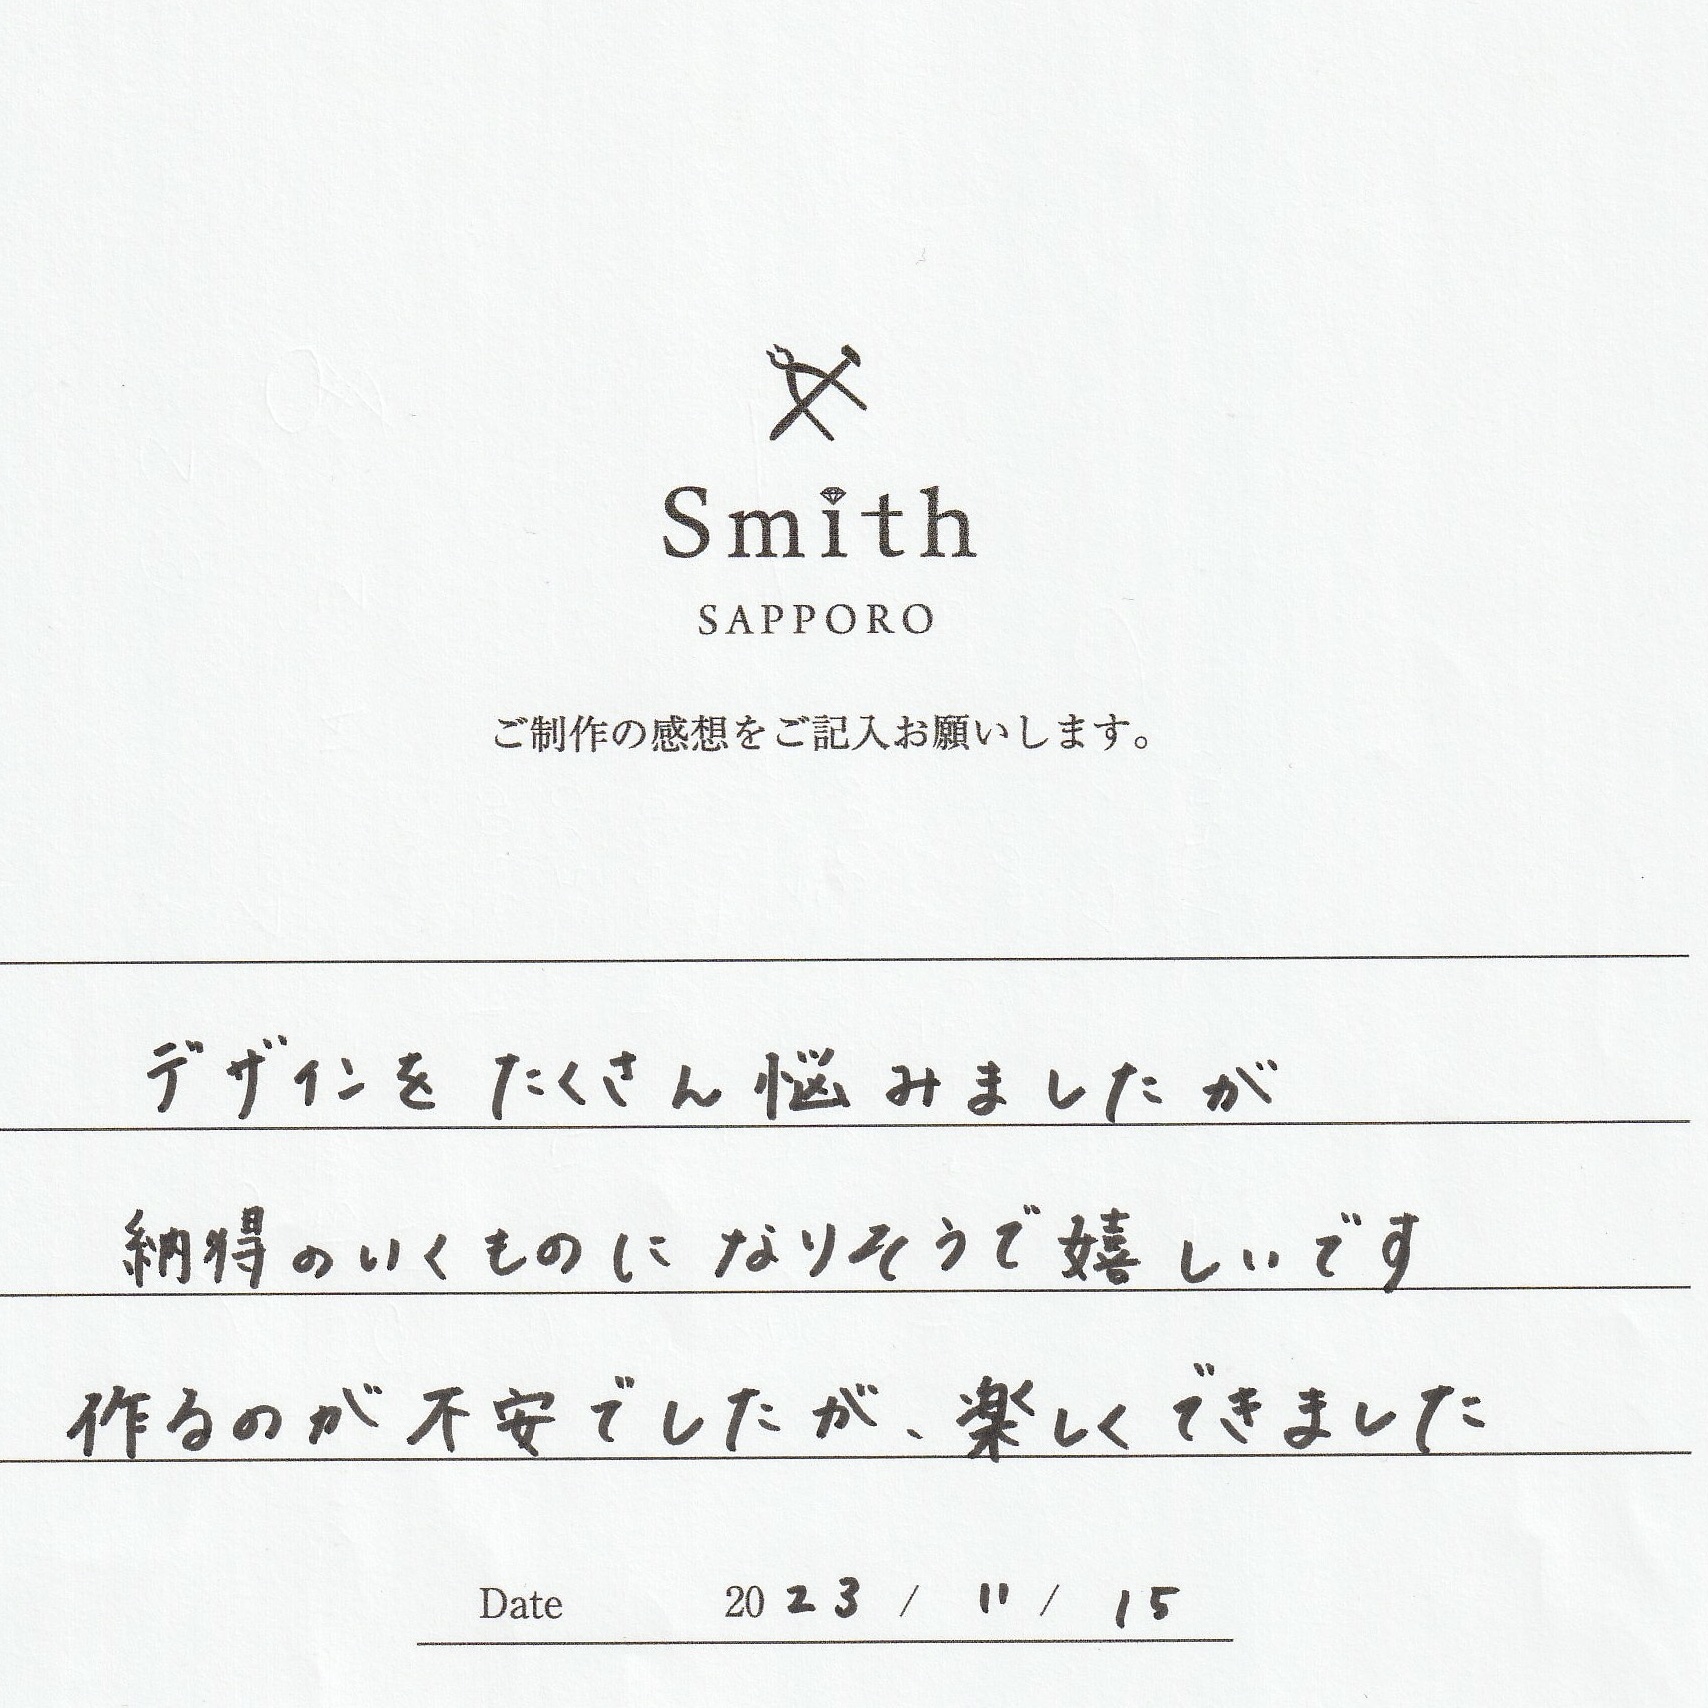 Smith
SAPPORO
ご制作の感想をご記入お願いします。
デザインをたくさん悩みましたが
納得のいくものになりそうで嬉しいです
作るのが不安でしたが、楽しくできました
Date 2023 / 11 / 15